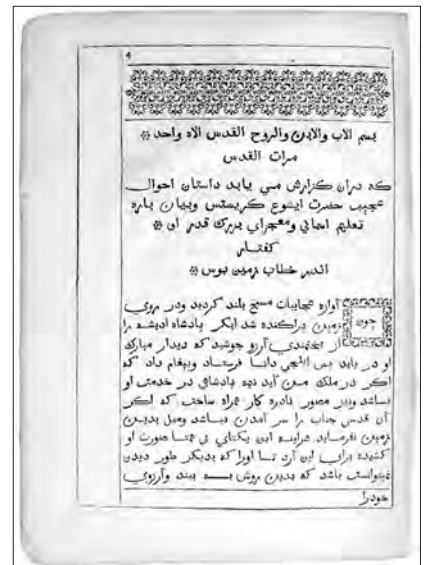 4
بسم الاب والابن والروح القدس الاه واحد
مرات القدس
که دران کزارش مي يابد داستان احوال
عجيب حضرت ايشوع کريستس وبيان باره
تعليم اسماني ومعجزاي بزرك قدر ان
کفتار
اندر خطاب زمين بوس
چون آوازه عجايبات مسيح بلند کرديد ودر روي
زمين پراکنده شد ابکر پادشاه اديشه را
از آرزو جوشيد که ديدار مبارك
او در يابد پس ايلچي دانا فرستاد وپيغام داد که
اکر در ملك من آيد پادشاهي در خدمتي او
باشد ونيز مصور نادره کار همراه ساخت که اکر
آن قدسي جناب را سر آمدن نباشد وميل بدين
زمين نفرمايد هراينه اين يکتاي بي همتا صورت او
کشيده براي اين آرد تا اورا که بديکر طور ديدن
نميتوانست باشد که بدين روش بيند وآرزوي
خودرا